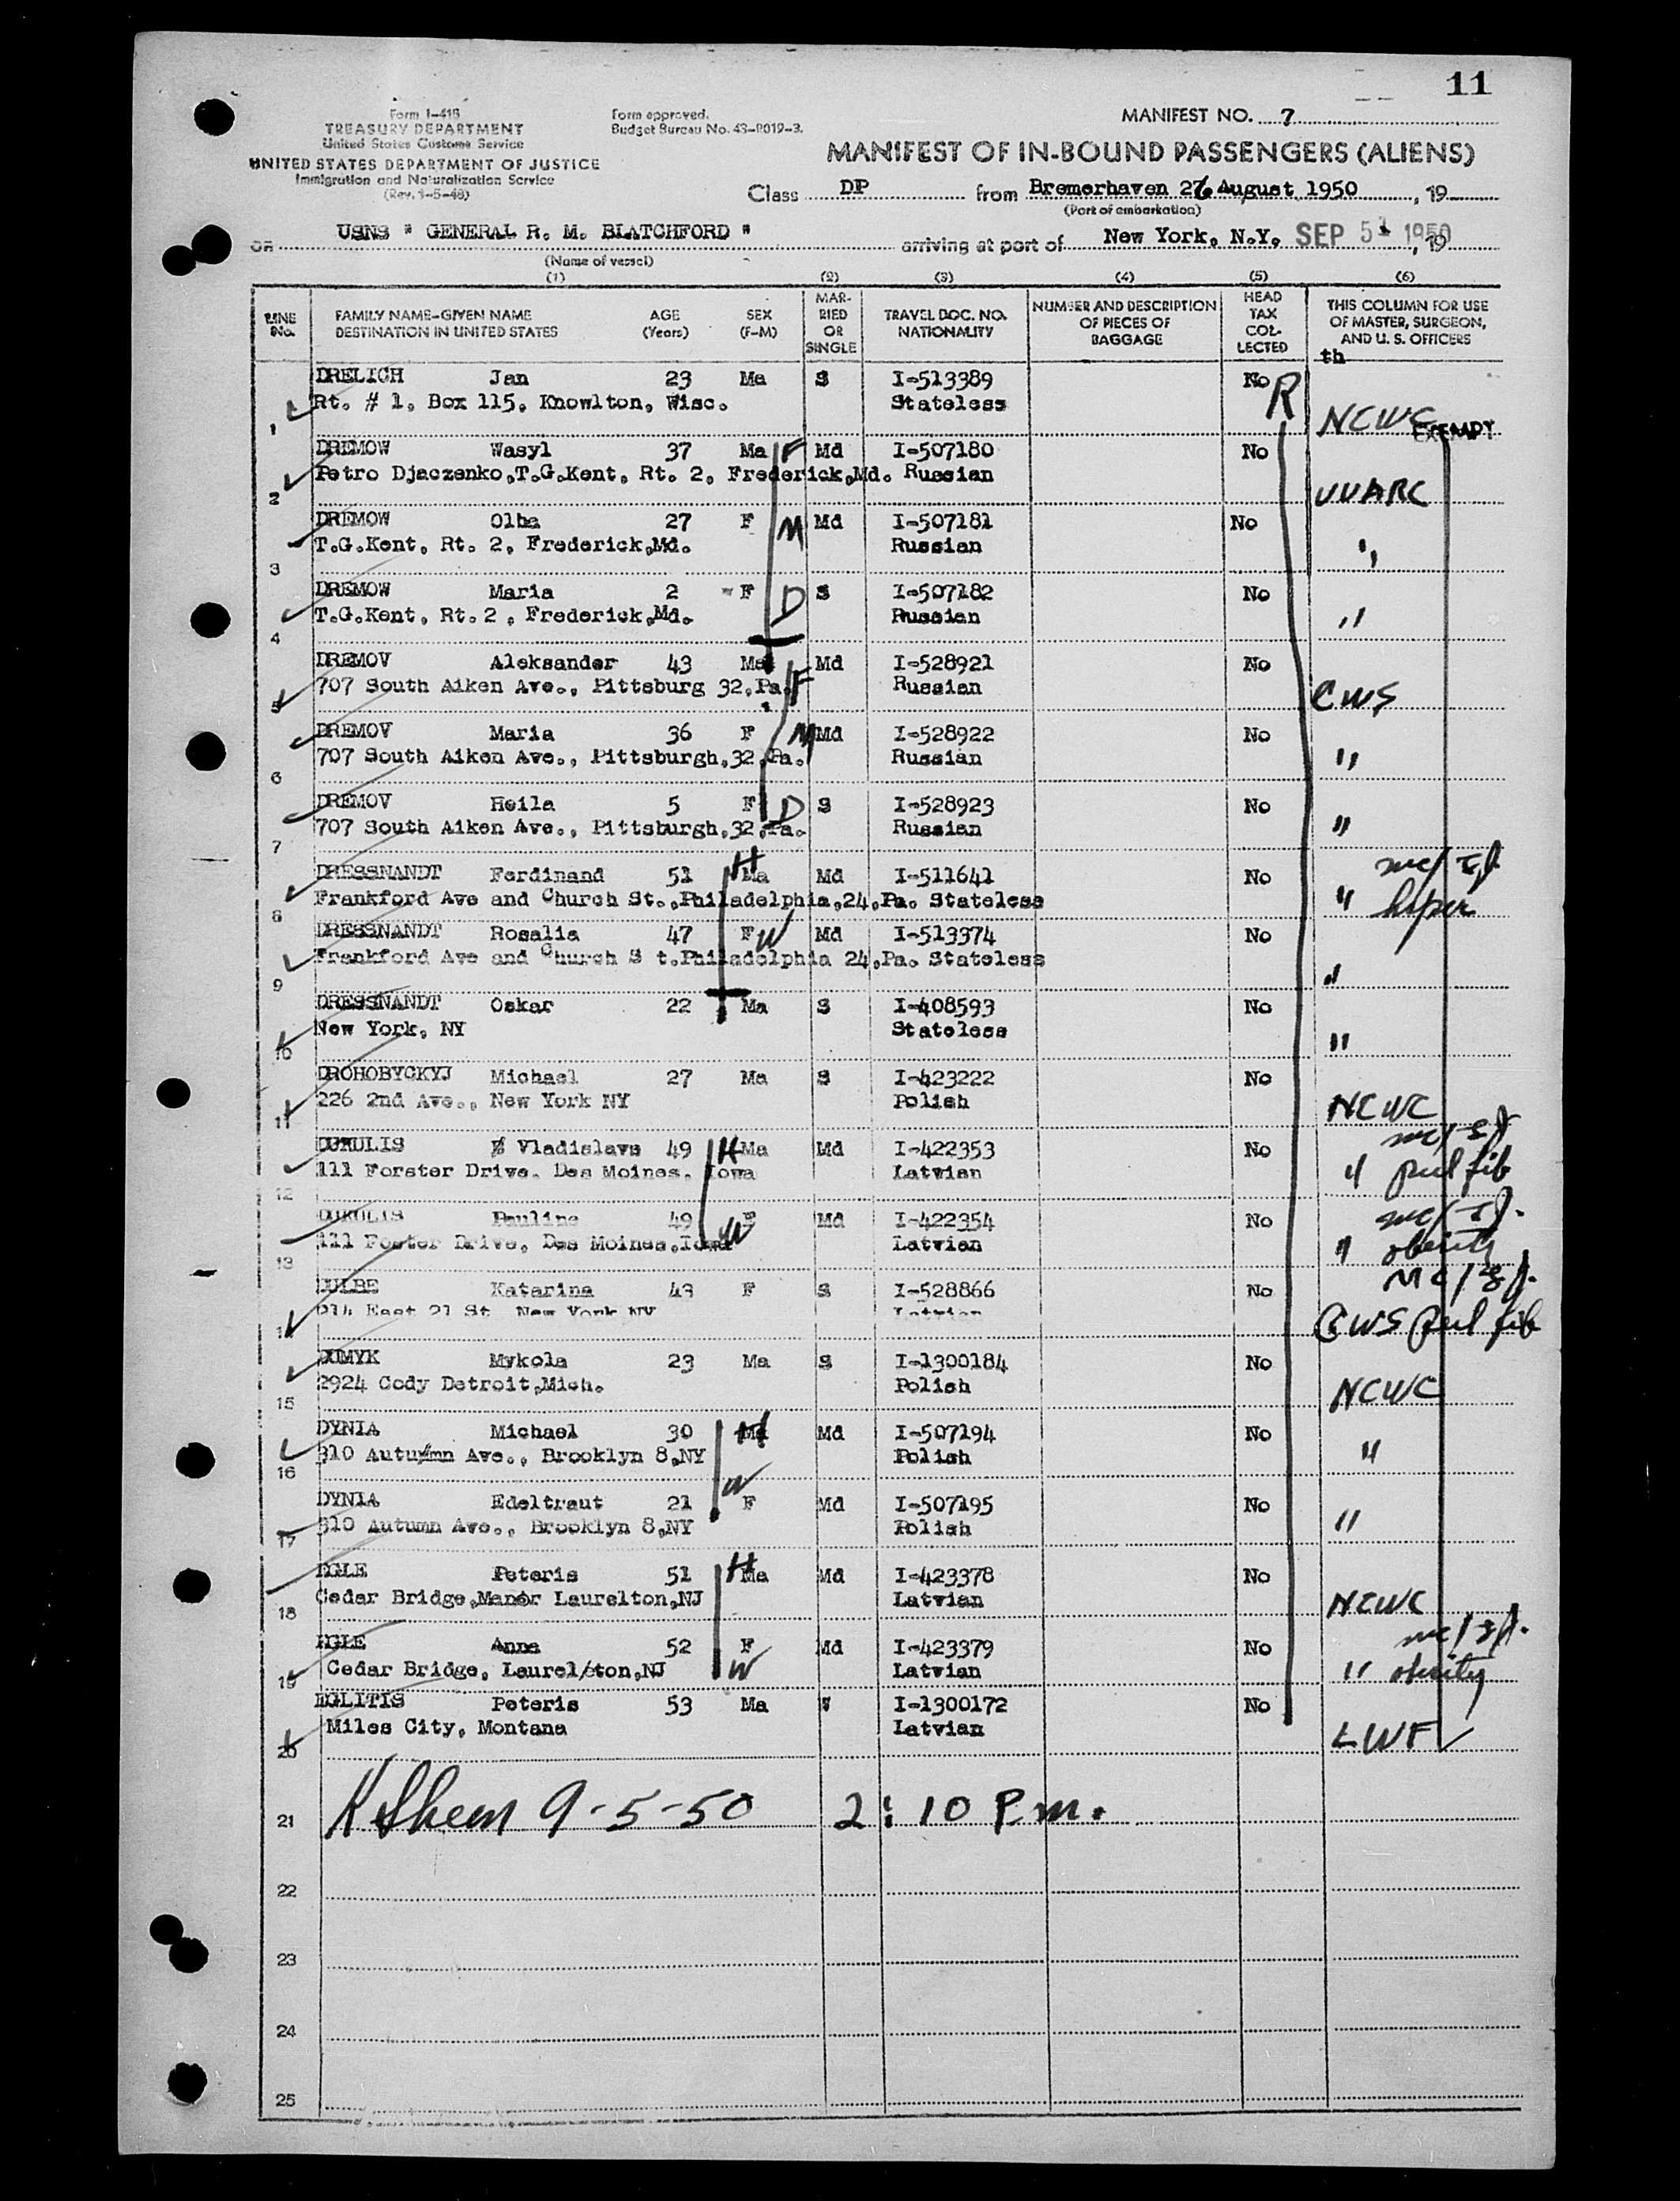 11
Form I-418
TREASURY DEPARTMENT
United States Customs Service
UNITED STATES DEPARTMENT OF JUSTICE
Immigration and Naturalization Service
(Rev. 1-5-48)
Form approved.
Budget Bureau No. 43-R019-3.
MANIFEST NO. 7
MANIFEST OF IN-BOUND PASSENGERS (ALIENS)
Class DP from Bremerhaven 26 August 1950, 19
(Port of embarkation)
on USNS " GENERAL R. M. BLATCHFORD " arriving at port of New York, N.Y. SEP 5 1950, 19
(Name of vessel)
(1) (2) (3) (4) (5) (6)
LINE No. FAMILY NAME-GIVEN NAME DESTINATION IN UNITED STATES AGE (Years) SEX (F-M) MARRIED OR SINGLE TRAVEL DOC. NO. NATIONALITY NUMBER AND DESCRIPTION OF PIECES OF BAGGAGE HEAD TAX COLLECTED THIS COLUMN FOR USE OF MASTER, SURGEON, AND U. S. OFFICERS
th
DRELICH Jan 23 Ma S I-513389 No R
Rt. # 1, Box 115, Knowlton, Wisc. Stateless
1 NCWC EXEMPT
DREMOW Wasyl 37 Ma F Md I-507180 No
Petro Djaczenko,T.G.Kent, Rt. 2, Frederick,Md. Russian
2 UUARC
DREMOW Olha 27 F M Md I-507181 No
T.G.Kent, Rt. 2, Frederick,Md. Russian "
3
DREMOW Maria 2 F D S I-507182 No
T.G.Kent, Rt.2 , Frederick,Md. Russian "
4
DREMOV Aleksander 43 Ma F Md I-528921 No
707 South Aiken Ave., Pittsburg 32,Pa. Russian
5 CWS
DREMOV Maria 36 F M Md I-528922 No
707 South Aiken Ave., Pittsburgh,32,Pa. Russian "
6
DREMOV Heila 5 F D S I-528923 No
707 South Aiken Ave., Pittsburgh,32,Pa. Russian "
7
DRESSNANDT Ferdinand 51 H Ma Md I-511641 No
Frankford Ave and Church St.,Philadelphia,24,Pa. Stateless "
8
DRESSNANDT Rosalia 47 F W Md I-513374 No
Frankford Ave and Church S t.Philadelphia 24,Pa. Stateless
9 "
DRESSNANDT Oskar 22 Ma S I-408593 No
New York, NY Stateless
10 "
DROHOBYCKYJ Michael 27 Ma S I-423222 No
226 2nd Ave., New York NY Polish
11 NCWC
Vladislavs 49 H Ma Md I-422353 No
111 Forster Drive. Des Moines. Iowa Latvian " pul fib
12
Pauline 49 F W Md I-422354 No
111 Foster Drive, Des Moines,Iowa Latvian " obesity
13
DULBE Katarina 43 F S I-528866 No
214 East 21 St New York NY Latvian
14 CWS pul fib
DUMYK Mykola 23 Ma S I-1300184 No
2924 Cody Detroit,Mich. Polish
15 NCWC
DYNIA Michael 30 H Ma Md I-507194 No
310 Autumn Ave., Brooklyn 8,NY Polish "
16
DYNIA Edeltraut 21 W F Md I-507195 No
310 Autumn Ave., Brooklyn 8,NY Polish "
17
EGLE Peteris 51 H Ma Md I-423378 No
Cedar Bridge,Manor Laurelton,NJ Latvian
18 NCWC
EGLE Anna 52 F W Md I-423379 No
Cedar Bridge, Laurelton,NJ Latvian " obesity
19
EGLITIS Peteris 53 Ma I-1300172 No
Miles City, Montana Latvian
20 LWF
21 9-5-50 2:10 P.m.
22
23
24
25